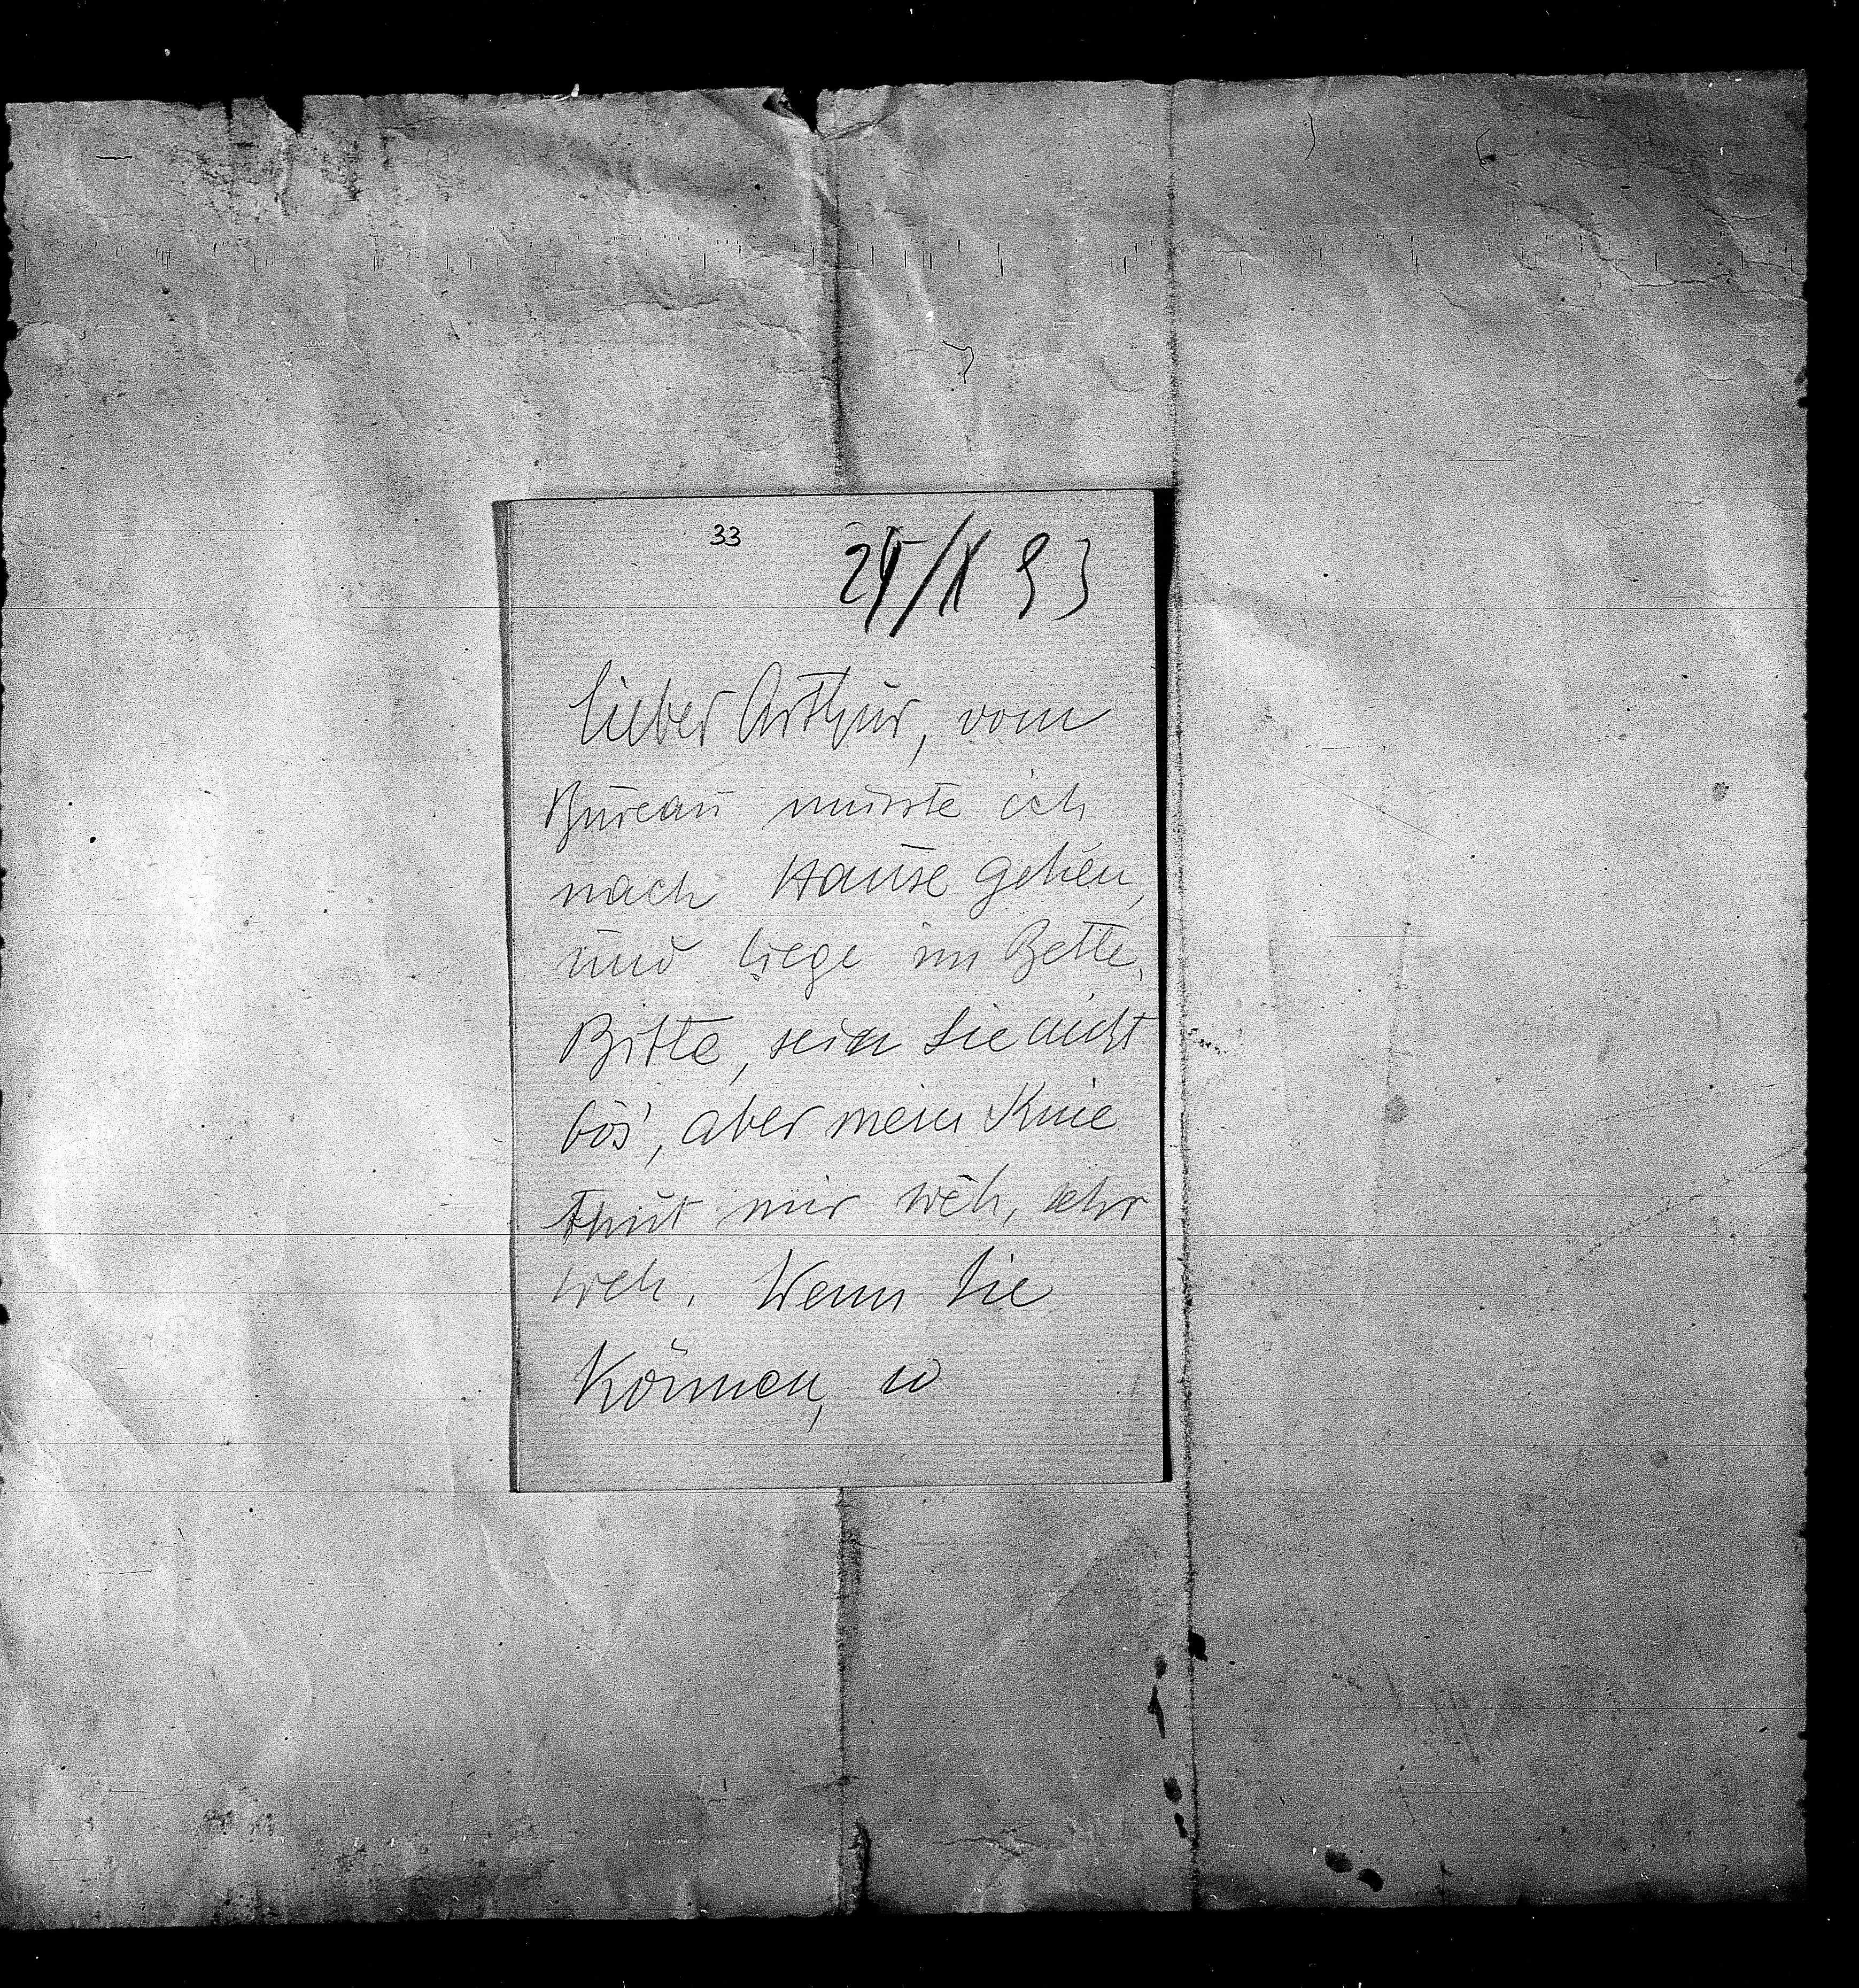 33
lieber Arthur, vom
Bureau musste ich
nach Hause gehen,
und liege im Bette.
Bitte, sein Sie nicht
bös', aber mein Knie
thut mir weh, sehr
weh. Wenn Sie
können, so